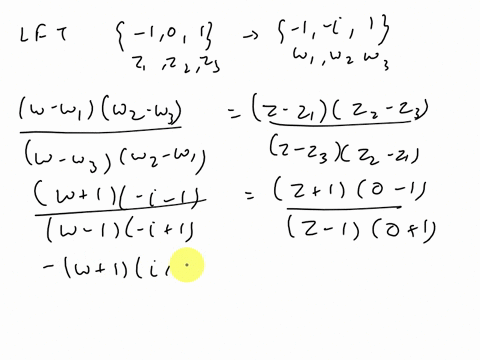 LFT {-1, 0, 1} → {-1, -i, 1}
z₁, z₂, z₃ w₁, w₂ w₃
(w-w₁)(w₂-w₃) / (w-w₃)(w₂-w₁) = (z-z₁)(z₂-z₃) / (z-z₃)(z₂-z₁)
(w+1)(-i-1) / (w-1)(-i+1) = (z+1)(0-1) / (z-1)(0+1)
-(w+1)(i